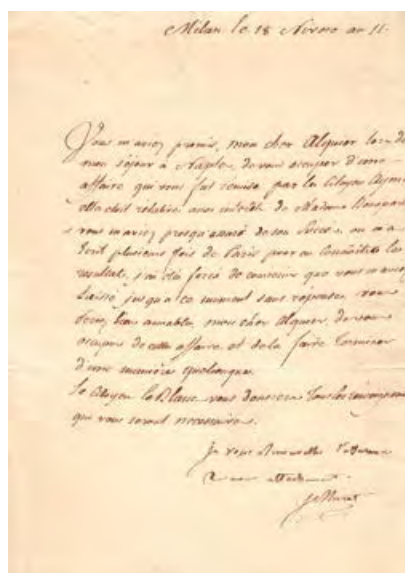 Milan le 18 Nivose an 11.
Vous m'aviez promis, mon cher Alquier lors de
mon séjour à Naples, de vous occuper d'une
affaire qui vous fut remise par le Citoyen Aymé
elle était relative aux intérêts de Madame
vous m'aviez presqu'assuré de son succès, on m'a
écrit plusieurs fois de Paris pour en connaître le
résultat, j'ai été forcé de convenir que vous m'aviez
laissé jusqu'à ce moment sans réponse, vous
seriez bien aimable, mon cher Alquier, de vous
occuper de cette affaire, et de la faire terminer
d'une manière quelconque.
Le Citoyen le Blanc vous donnera tous les
qui vous seront nécessaires.
Je vous renouvelle l'assurance
de mon attachement
J Murat